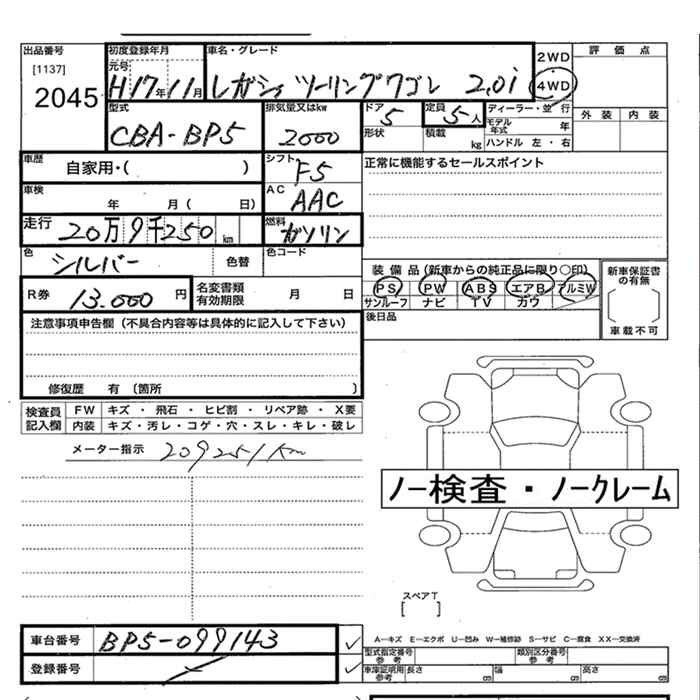 出品番号 初度登録年月 車名・グレード 2WD 評価点
[1137] 元号
2045 H17年11月 レガシィツーリングワゴン 2.0i 4WD
型式 排気量又はkw ドア 定員 ディーラー・並行 外装 内装
CBA-BP5 2000 5 5人 モデル年式 年
形状 積載 kg ハンドル 左・右
車歴 自家用・( ) シフト F5 正常に機能するセールスポイント
車検 年 月( 日) AC AAC
走行 20万9千250km 燃料 ガソリン
色 シルバー 色替 色コード 装備品(新車からの純正品に限り○印) 新車保証書の有無
R券 13.000円 名変書類有効期限 月 日 PS PW ABS エアB アルミW
サンルーフ ナビ TV カワ [ ]
注意事項申告欄(不具合内容等は具体的に記入して下さい) 後日品 車載不可
修復歴 有 (箇所 )
検査員記入欄 FW キズ・飛石・ヒビ割・リペア跡・X要
内装 キズ・汚レ・コゲ・穴・スレ・キレ・破レ
メーター指示 209251km
ノー検査・ノークレーム
スペアT
[ ]
車台番号 BP5-099143 A−キズ E−エクボ U−凹み W−補修跡 S−サビ C−腐食 XX−交換済
型式指定番号 参考 類別区分番号 参考
登録番号 車庫証明用 参考 長さ 幅 高さ